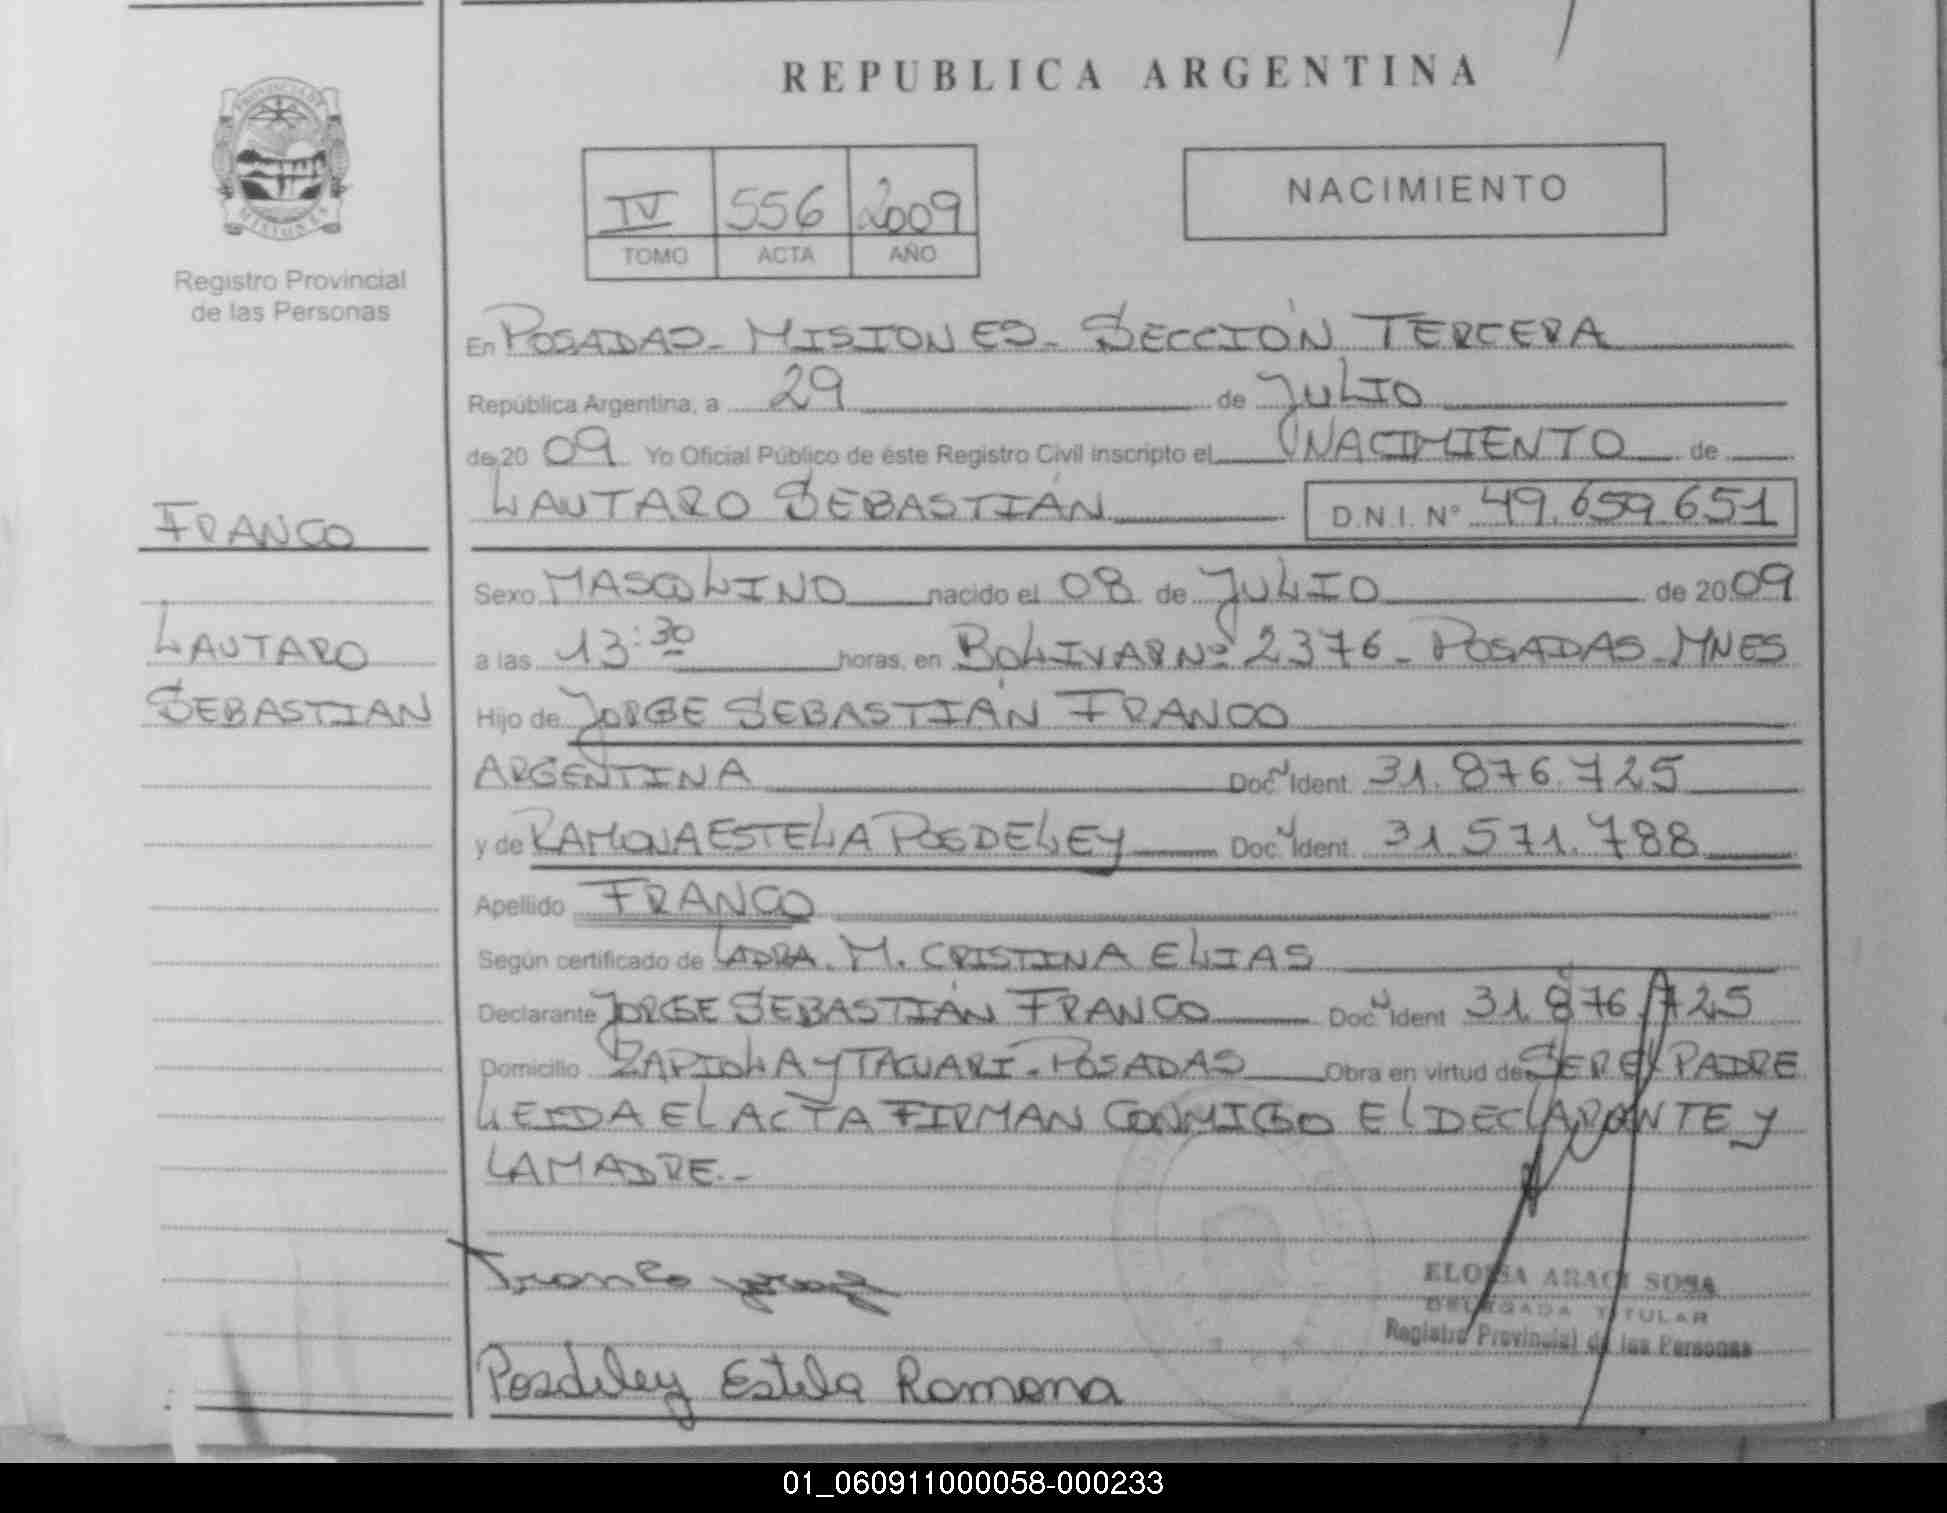 REPUBLICA ARGENTINA
PROVINCIA DE
MISIONES
Registro Provincial
de las Personas
IV 556 2009
TOMO ACTA AÑO
NACIMIENTO
En POSADAS - MISIONES - SECCIÓN TERCERA
República Argentina, a 29 de JULIO
de 20 09 Yo Oficial Público de éste Registro Civil inscripto el NACIMIENTO de
LAUTARO SEBASTIÁN D.N.I. Nº 49.659.651
FRANCO
Sexo MASCULINO nacido el 08 de JULIO de 20 09
LAUTARO
a las 13:30 horas, en BOLIVAR Nº 2376 - POSADAS - MNES
SEBASTIAN
Hijo de JORGE SEBASTIÁN FRANCO
ARGENTINA Doc. Ident. 31.876.725
y de RAMONA ESTELA POSDELEY Doc. Ident. 31.571.788
Apellido FRANCO
Según certificado de LA DRA. M. CRISTINA ELIAS
Declarante JORGE SEBASTIÁN FRANCO Doc. Ident 31.876.725
Domicilio ZAPIOLA Y TACUARI - POSADAS Obra en virtud de SER EL PADRE
LEIDA EL ACTA FIRMAN CONMIGO EL DECLARANTE Y
LA MADRE.-
Franco
ELOISA ARACI SOSA
DELEGADA TITULAR
Registro Provincial de las Personas
Posdeley Estela Ramona
01_060911000058-000233